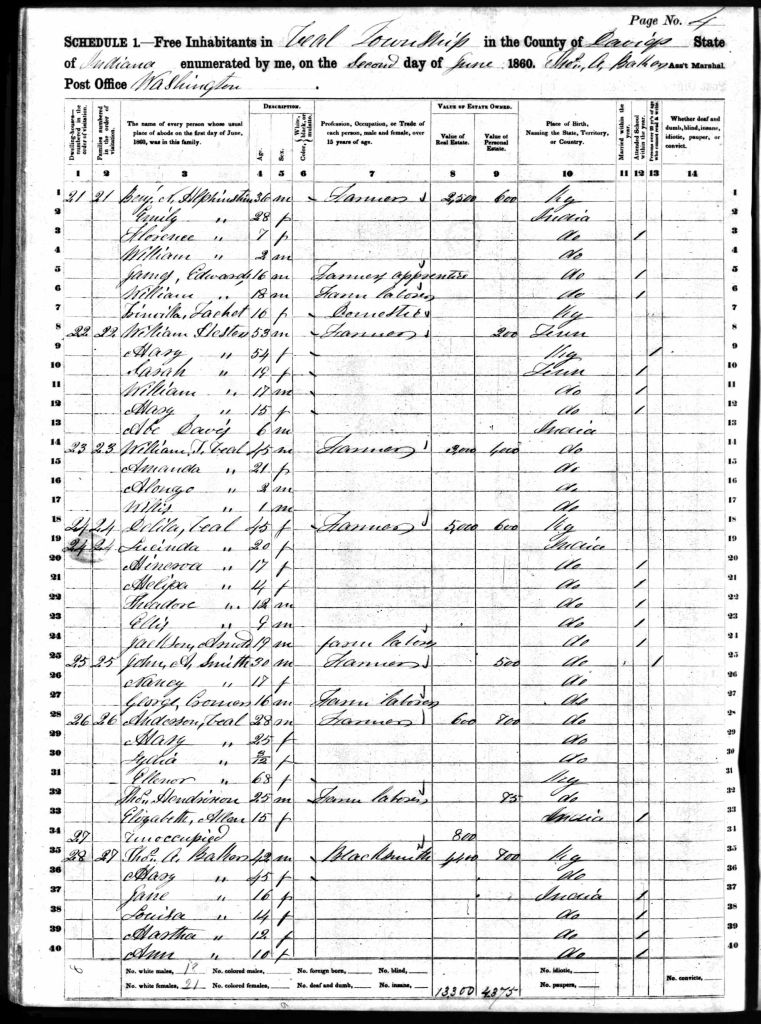 Page No. 4
SCHEDULE 1.—Free Inhabitants in Veal Township in the County of Daviess State
of Indiana enumerated by me, on the Second day of June 1860. Thos. A. Ass't Marshal
Post Office Washington
DESCRIPTION. VALUE OF ESTATE OWNED.
Dwelling-houses— numbered in the order of visitation. Families numbered in the order of visitation. The name of every person whose usual place of abode on the first day of June, 1860, was in this family. Age. Sex. Color, White, black, or mulatto. Profession, Occupation, or Trade of each person, male and female, over 15 years of age. Value of Real Estate. Value of Personal Estate. Place of Birth, Naming the State, Territory, or Country. Married within the year. Attended School within the year. Whether deaf and dumb, blind, insane, idiotic, pauper, or convict.
1 2 3 4 5 6 7 8 9 10 11 12 13 14
1 21 21 Benj. 36 m Farmer 2,500 600 Ky 1
2 Emily " 28 f India 2
3 Florence " 7 f do 1 3
4 William " 2 m do 4
5 James, Edwards 16 m Farmers apprentice do 1 5
6 William " 18 m Farm laborer do 1 6
7 16 f Domestic Ky 7
8 22 22 William 53 m Farmer 200 Tenn 8
9 Mary " 54 f Ky 1 9
10 Sarah " 19 f Tenn 1 10
11 William " 17 m do 1 11
12 Mary " 15 f do 1 12
13 Abe Davis 6 m India 13
14 23 23 William, T. Veal 45 m Farmer 3,000 4,000 do 14
15 Amanda " 21 f do 15
16 Alonzo " 2 m do 16
17 " 1 m do 17
18 24 24 Delila, Veal 45 f Farmer 5,000 600 Ky 18
19 24 24 Lucinda " 20 f India 19
20 Minerva " 17 f do 1 20
21 Melissa " 14 f do 1 21
22 Theadore " 12 m do 1 22
23 Ellis " 9 m do 1 23
24 Jackson, 19 m farm laborer do 1 24
25 25 25 John, A. Smith 30 m Farmer 500 do 1 25
26 Nancy " 17 f do 26
27 George, 16 m Farm laborer do 27
28 26 26 Anderson, Veal 28 m Farmer 600 700 do 28
29 Mary " 25 f do 29
30 Lydia " f do 30
31 Ellenor " 68 f Ky 31
32 Thos. Hendrixson 25 m Farm laborer 75 do 32
33 Elizabeth, Allen 15 f India 1 33
34 27 unoccupied 800 34
35 28 27 Thos. A. 42 m Blacksmith 1,400 700 Ky 35
36 Mary " 45 f do 36
37 Jane " 16 f India 1 37
38 Louisa " 14 f do 1 38
39 Martha " 12 f do 1 39
40 Ann " 10 f do 1 40
No. white males, No. colored males, No. foreign born, No. blind, No. idiotic,
No. white females, 21 No. colored females, No. deaf and dumb, No. insane, 13300 4375 No. paupers, No. convicts,